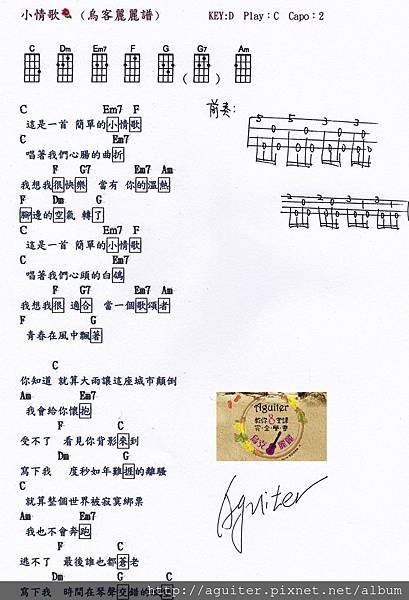 小情歌 (烏客麗麗譜) KEY:D Play:C Capo:2
C Dm Em7 F G G7 Am
( )
前奏:
5 5 3 3
0 0 0 0
2 0 2 0
C Em7 F
這是一首 簡單的小情歌
C Em7
唱著我們心腸的曲折
F G7 Em7 Am
我想我很快樂 當有 你的溫熱
F Dm G
腳邊的空氣 轉了
C Em7 F
這是一首 簡單的小情歌
C Em7
唱著我們心頭的白鴿
F G7 Em7 Am
我想我很 適合 當一個歌頌者
F G
青春在風中飄著
C
你知道 就算大雨讓這座城市顛倒
Am Em7
我會給你懷抱
F C
受不了 看見你背影來到
Dm G
寫下我 度秒如年難捱的離騷
C
就算整個世界被寂寞綁票
Am Em7
我也不會奔跑
F C
逃不了 最後誰也都蒼老
Dm G C
寫下我 時間在琴聲交錯的城堡
Aguiter
Aguiter
http://aguiter.pixnet.net/album